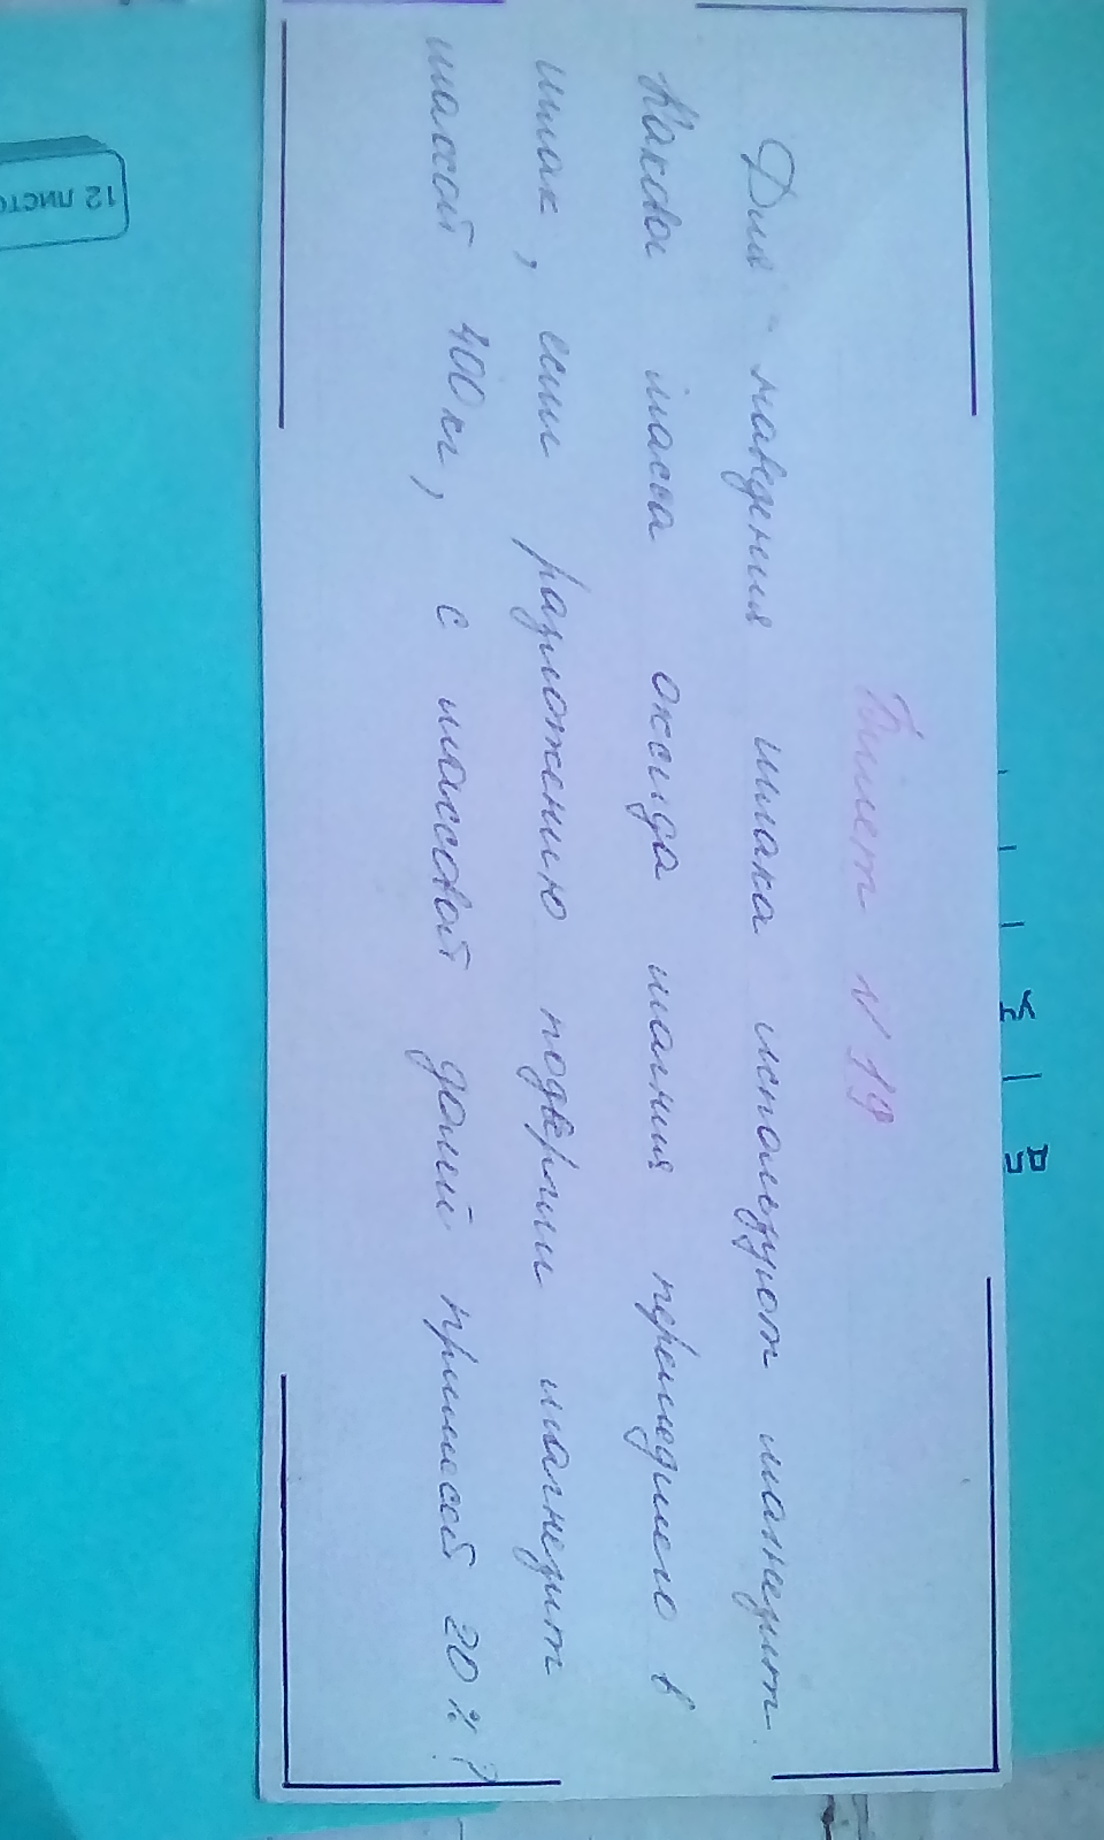 Билет N 19
Для наведения шлака используют магнезит.
Какова масса оксида магния перешедшего в
шлак, если разложению подвергли магнезит
массой 400 кг, с массовой долей примесей 20 %?
12 листо
уч
дл